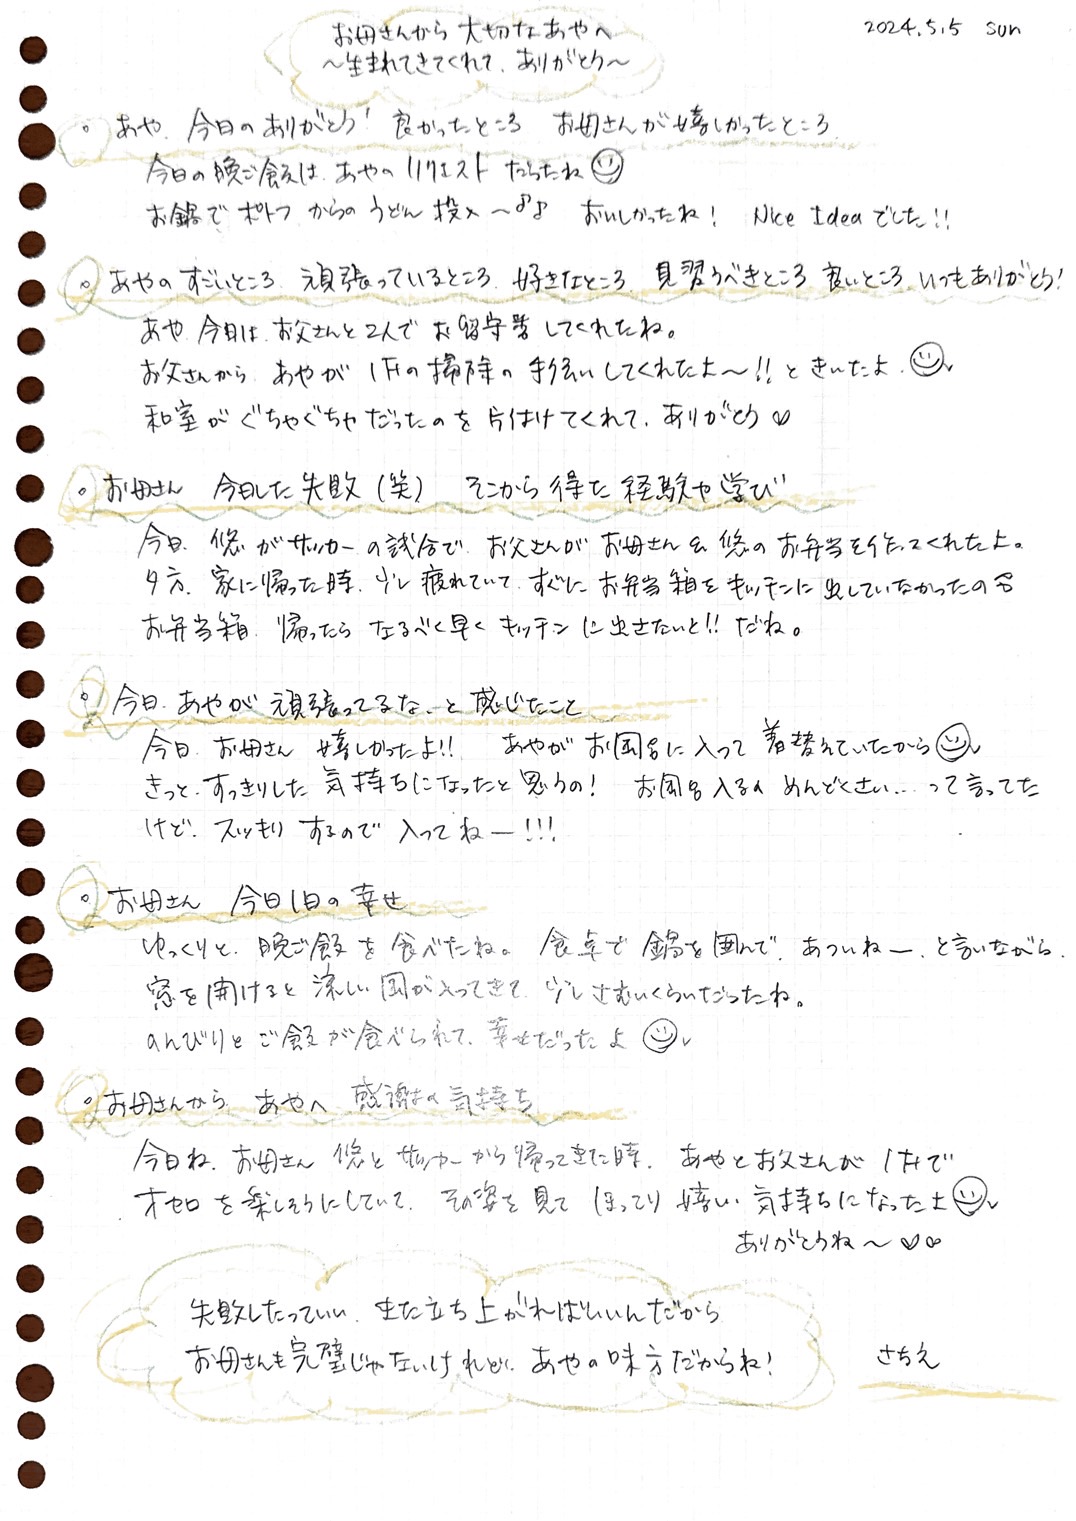 お母さんから 大切なあやへ
2024.5.5 sun
～生まれてきてくれて、ありがとう～
。あや、今日のありがとう! 良かったところ お母さんが嬉しかったところ
今日の晩ご飯は、あやの リクエスト だったね
お鍋で ポトフ からの うどん 投入〜♪♪ おいしかったね! Nice Idea でした!!
。あやの すごいところ、頑張っているところ、好きなところ、見習うべきところ 良いところ、いつもありがとう!
あや、今日は、お父さんと2人で お留守番 してくれたね。
お父さんから、あやが 1Fの掃除の 手伝いしてくれたよ〜!! と きいたよ、
和室が ぐちゃぐちゃだったのを 片付けてくれて、ありがとう♡
。お母さん 今日した失敗(笑) そこから得た 経験や学び
今日、悠がサッカーの試合で、お父さんが お母さんと 悠の お弁当を作ってくれたよ。
夕方、家に帰った時、少し疲れていて、すぐに お弁当箱を キッチンに 出していなかったの
お弁当箱、帰ったら なるべく早く キッチンに出さないと!! だね。
。今日、あやが 頑張ってるな、と 感じたこと
今日、お母さん 嬉しかったよ!! あやが お風呂に入って 着替えていたから
きっと、すっきりした 気持ちになったと思うの! お風呂入るの めんどくさい...って言ってた
けど、スッキリ するので 入ってねー!!!
。お母さん 今日1日の 幸せ
ゆっくりと、晩ご飯を 食べたね。食卓で 鍋を囲んで、あついねー、と言いながら、
窓を開けると 涼しい風が入ってきて、少しさむいくらいだったね。
のんびりと ご飯が食べられて、幸せだったよ
。お母さんから、あやへ 感謝の気持ち
今日ね、お母さん 悠と サッカーから帰ってきた時、あやとお父さんが 1Fで
オセロを 楽しそうにしていて、その姿を見て ほっこり 嬉しい 気持ちになったよ
ありがとうね〜♡♡
失敗したっていい、また立ち上がればいいんだから
お母さんも完璧じゃないけれど、あやの味方だからね!
さちえ